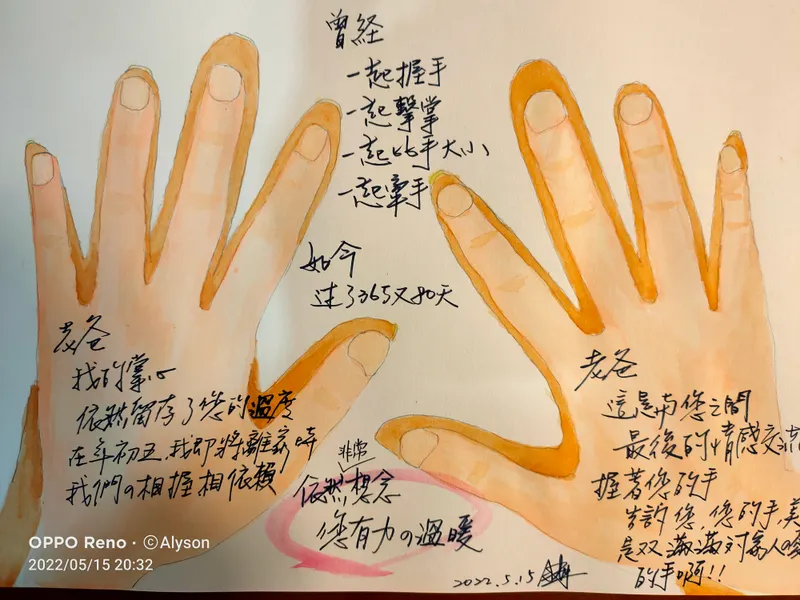 曾経
一起握手
一起擊掌
一起比手大小
一起牽手
如今
过了365又80天
老爸
我的掌心
依然留存了您的溫度
在年初五,我即將離家時
我們の相握相依賴
非常
依然想念
您有力の溫暖
老爸
這是與您之間
最後的情感交流
握著您的手
告訴您,您的手,美
是双滿滿对家人の愛
的手啊!!
2022.5.15
OPPO Reno · ©Alyson
2022/05/15 20:32